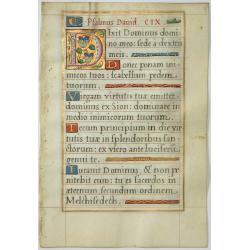 Psalmus Dauid. CIX
Dixit Dominus domi
no meo: sede a dextris
meis.
Donec ponam ini-
micos tuos: scabellum pedum
tuorum.
Virgam virtutis tuæ emittet
dominus ex Sion: dominare in
medio inimicorum tuorum.
Tecum principium in die vir
tutis tuæ in splendoribus san-
ctorum: ex vtero ante luciferum
genui te.
Iurauit Dominus, & non pœ
nitebit eum: tu es sacerdos in
æternum secundum ordinem
Melchisedech.